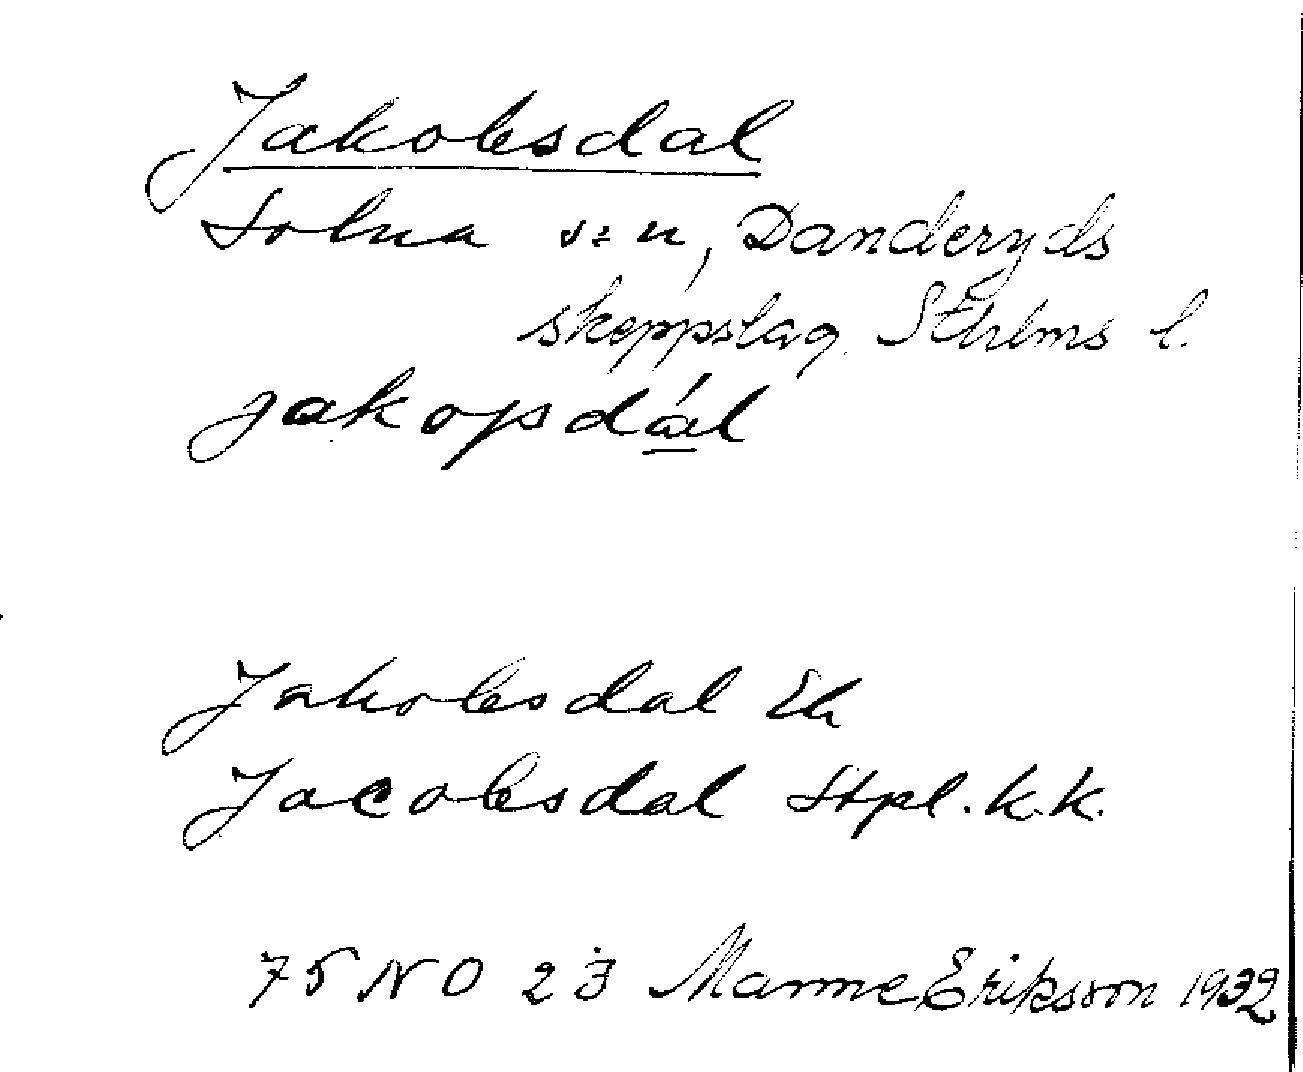 Jakobsdal
Solna s:n, Danderyds
skeppslag. Sthlms l.
jakopsdál
Jakobsdal Ek
Jacobsdal Stpl. k.k.
75 NO 23 Manne Eriksson 1932